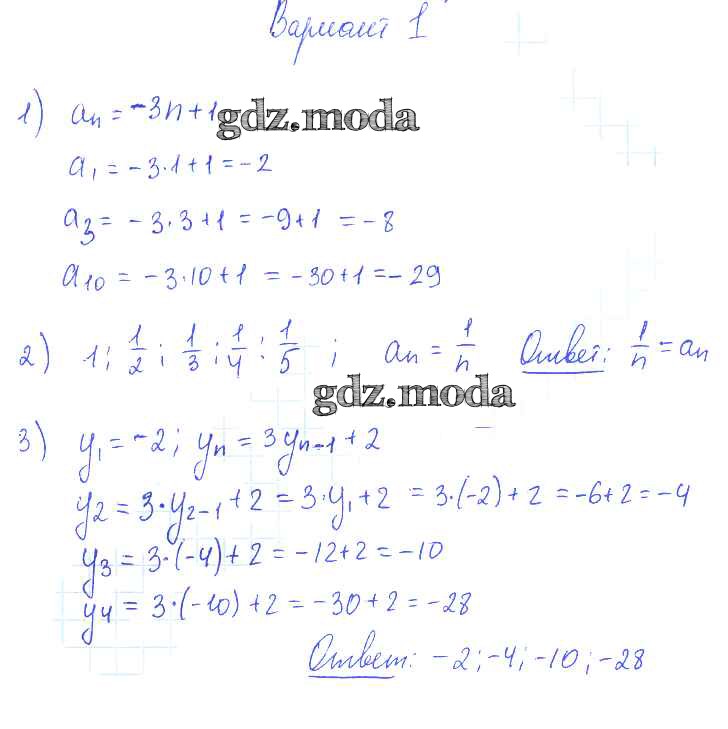 Вариант 1
1) aₙ = -3n + 1
gdz.moda
a₁ = -3·1 + 1 = -2
a₃ = -3·3 + 1 = -9+1 = -8
a₁₀ = -3·10 + 1 = -30+1 = -29
2) 1; 1/2; 1/3; 1/4; 1/5; aₙ = 1/n Ответ: 1/n = aₙ
gdz.moda
3) y₁ = -2; yₙ = 3yₙ₋₁ + 2
y₂ = 3·y₂₋₁ + 2 = 3·y₁ + 2 = 3·(-2) + 2 = -6+2 = -4
y₃ = 3·(-4) + 2 = -12+2 = -10
y₄ = 3·(-10) + 2 = -30+2 = -28
Ответ: -2; -4; -10; -28